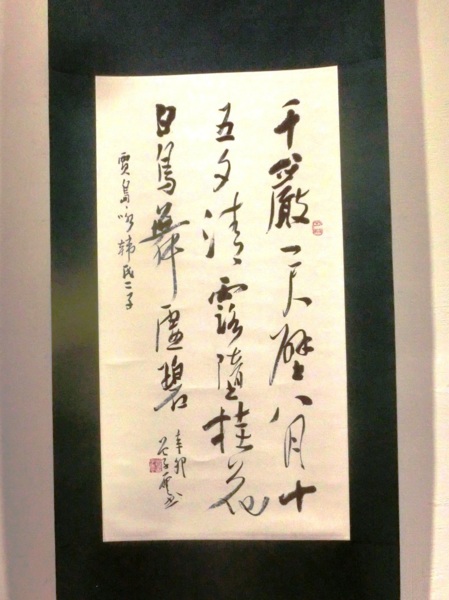 千巖一尺璧八月十
五夕清露墮桂花
白鳥舞虛碧
賈島咏韩氏二子
辛卯